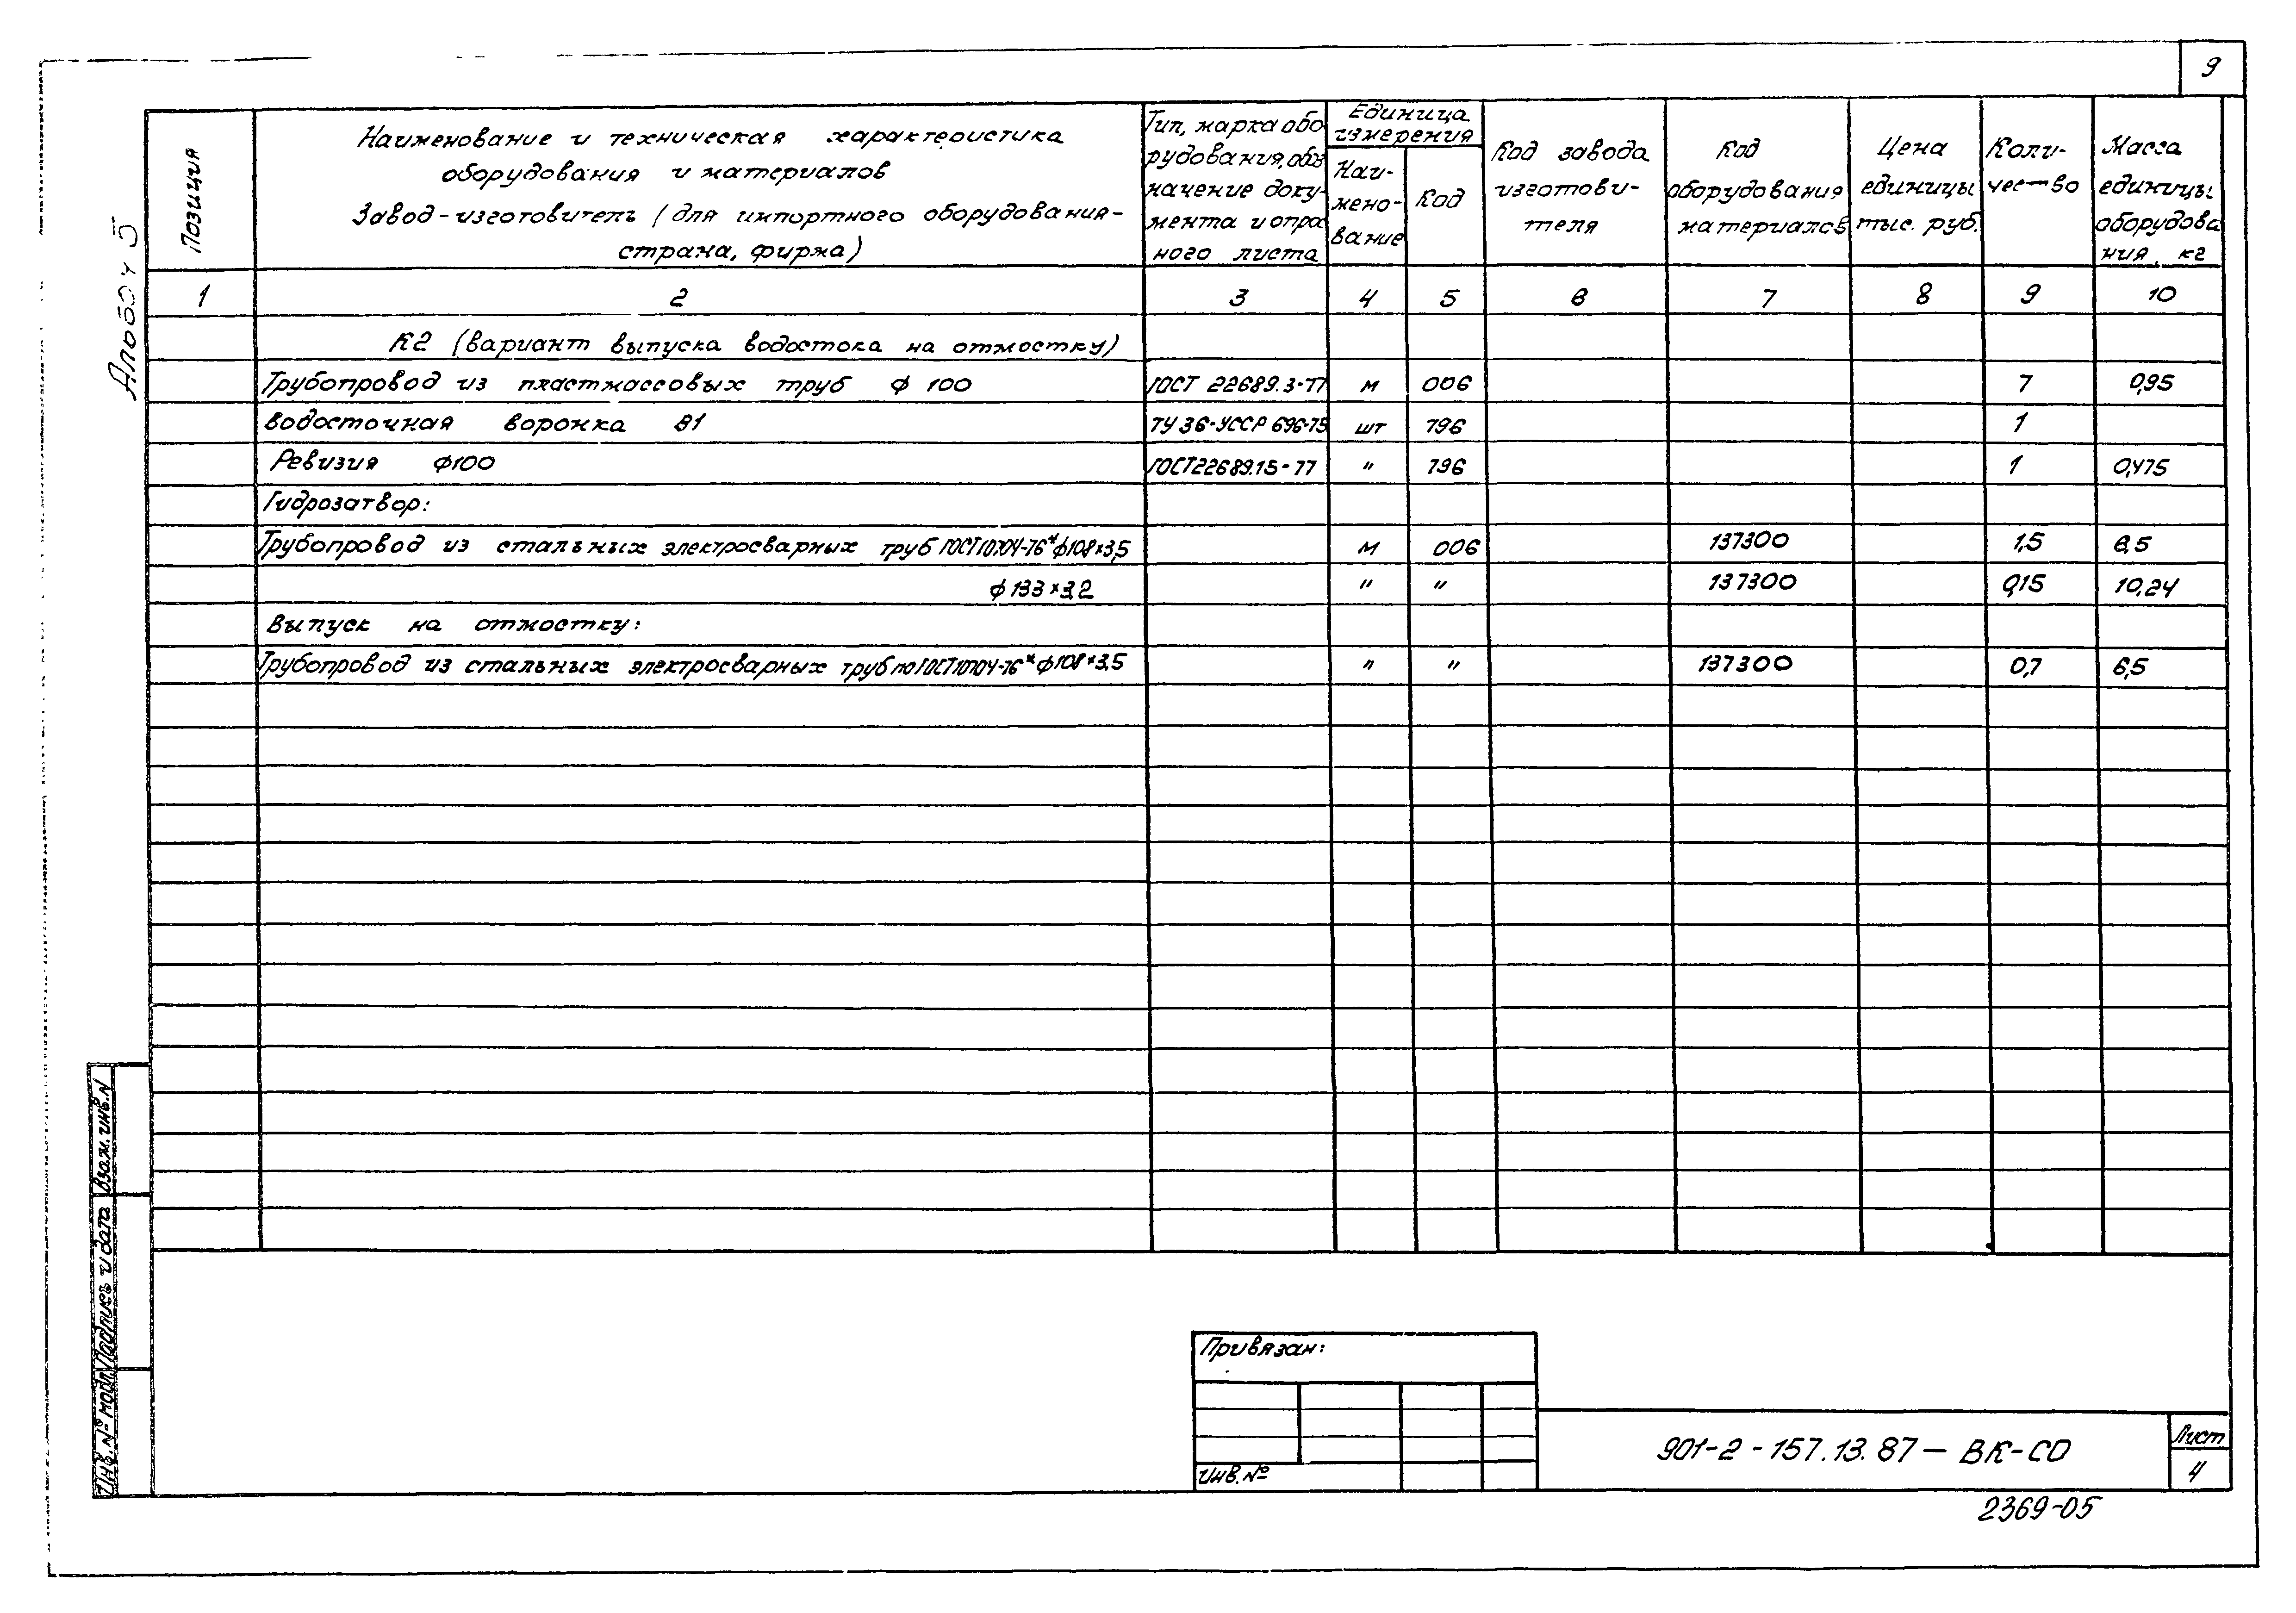 9
Альбом 5
Позиция
Наименование и техническая характеристика
оборудования и материалов
Завод-изготовитель (для импортного оборудования-
страна, фирма)
Тип, марка обо
рудования, обоз
начение доку-
мента и опро
ного листа
Единица
измерения
Наи-
мено-
вание
Код
Код завода
изготови-
теля
Код
оборудования
материалов
Цена
единицы
тыс. руб.
Коли-
чество
Масса
единицы
оборудова
ния, кг
1 2 3 4 5 6 7 8 9 10
К2 (вариант выпуска водостока на отмостку)
Трубопровод из пластмассовых труб ф 100 ГОСТ 22689.3-77 м 006 7 0,95
Водосточная воронка В1 ТУ 36-УССР 696-75 шт 796 1
Ревизия ф100 ГОСТ22689.15-77 " 796 1 0,475
Гидрозатвор:
Трубопровод из стальных электросварных труб ГОСТ10704-76* ф108×3,5 м 006 137300 1,5 6,5
ф133×3,2 " " 137300 0,15 10,24
Выпуск на отмостку:
Трубопровод из стальных электросварных труб по ГОСТ10704-76* ф108×3,5 " " 137300 0,7 6,5
Взам. инв. N
Подпись и дата
Инв. № подл
Привязан:
Инв. №
901-2-157.13.87-ВК-СО
Лист
4
2369-05